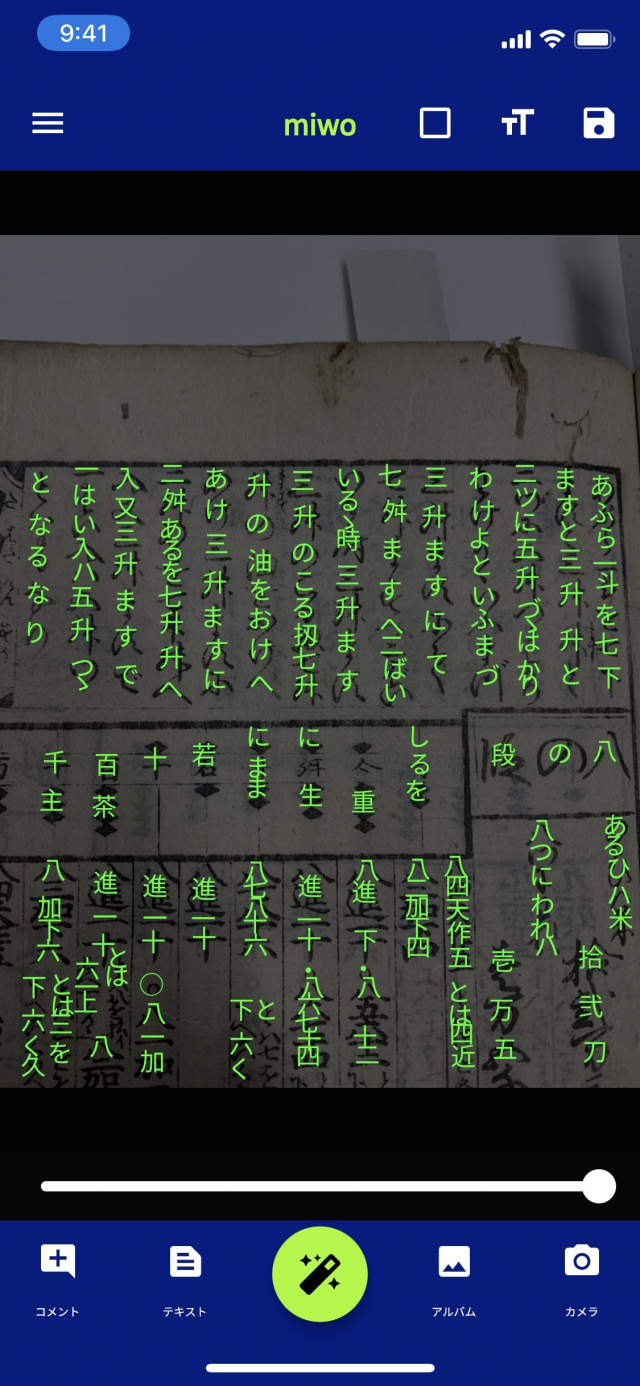 9:41
miwo
あふら一斗を七下
ますと三升升と
二ツに五升づゝほかり
わけよといふまづ
三升ますにて
七舛ますへ二ばい
いるゝ時三升ます
三升のこる扨七升
升の油をおけへ
あけ三升ますに
二舛あるを七升升へ
入又三升ますで
一はい入ハ五升つゝ
となるなり
八の段
しるを
重
に生
にまま
若
十
百茶
千主
あるひハ米
拾弐刀
八つにわれハ
壱万五
八四天作五とは四近
八二加下四
八進下・八十二
進一十・八六七十四
八七八十六
下六く
と
進一十
進一十〇八一加
進一十
とほ
六正
八
八三加下六
とは三を
下六く久
コメント
テキスト
アルバム
カメラ